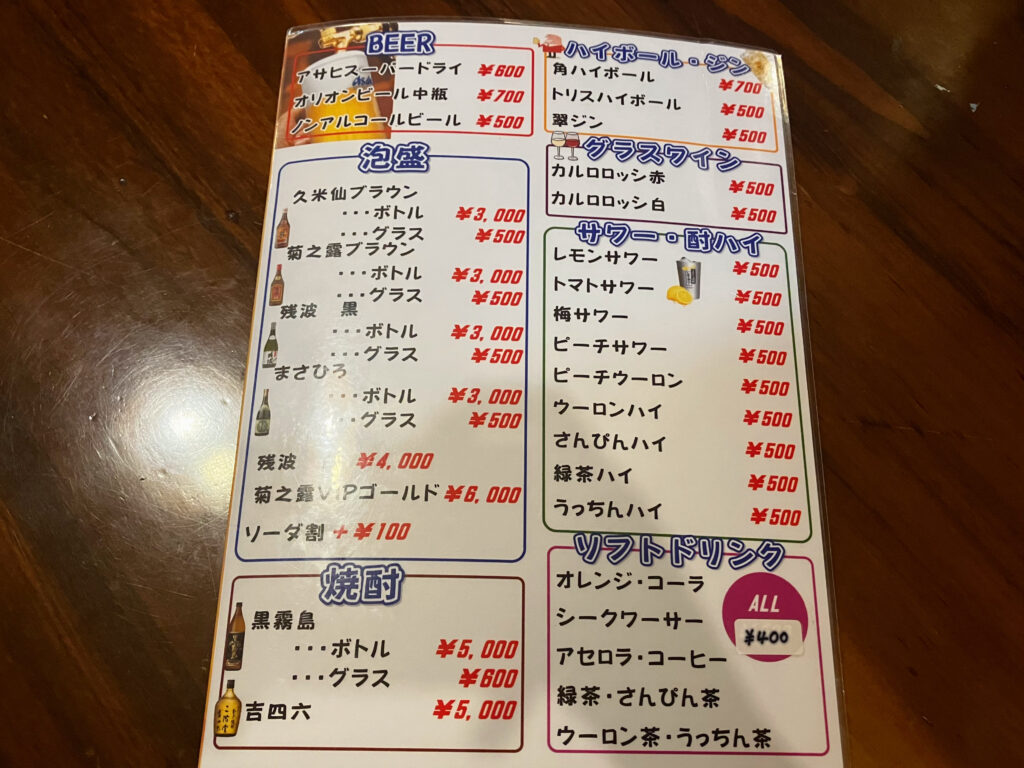 BEER
アサヒスーパードライ ¥600
オリオンビール中瓶 ¥700
ノンアルコールビール ¥500
泡盛
久米仙ブラウン
・・・ボトル ¥3,000
・・・グラス ¥500
菊之露ブラウン
・・・ボトル ¥3,000
・・・グラス ¥500
残波 黒
・・・ボトル ¥3,000
・・・グラス ¥500
まさひろ
・・・ボトル ¥3,000
・・・グラス ¥500
残波 ¥4,000
菊之露VIPゴールド ¥6,000
ソーダ割 + ¥100
焼酎
黒霧島
・・・ボトル ¥5,000
・・・グラス ¥600
吉四六 ¥5,000
ハイボール・ジン
角ハイボール ¥700
トリスハイボール ¥500
翠ジン ¥500
グラスワイン
カルロロッシ赤 ¥500
カルロロッシ白 ¥500
サワー・酎ハイ
レモンサワー ¥500
トマトサワー ¥500
梅サワー ¥500
ピーチサワー ¥500
ピーチウーロン ¥500
ウーロンハイ ¥500
さんぴんハイ ¥500
緑茶ハイ ¥500
うっちんハイ ¥500
ソフトドリンク
オレンジ・コーラ
シークワーサー
アセロラ・コーヒー
緑茶・さんぴん茶
ウーロン茶・うっちん茶
ALL
¥400